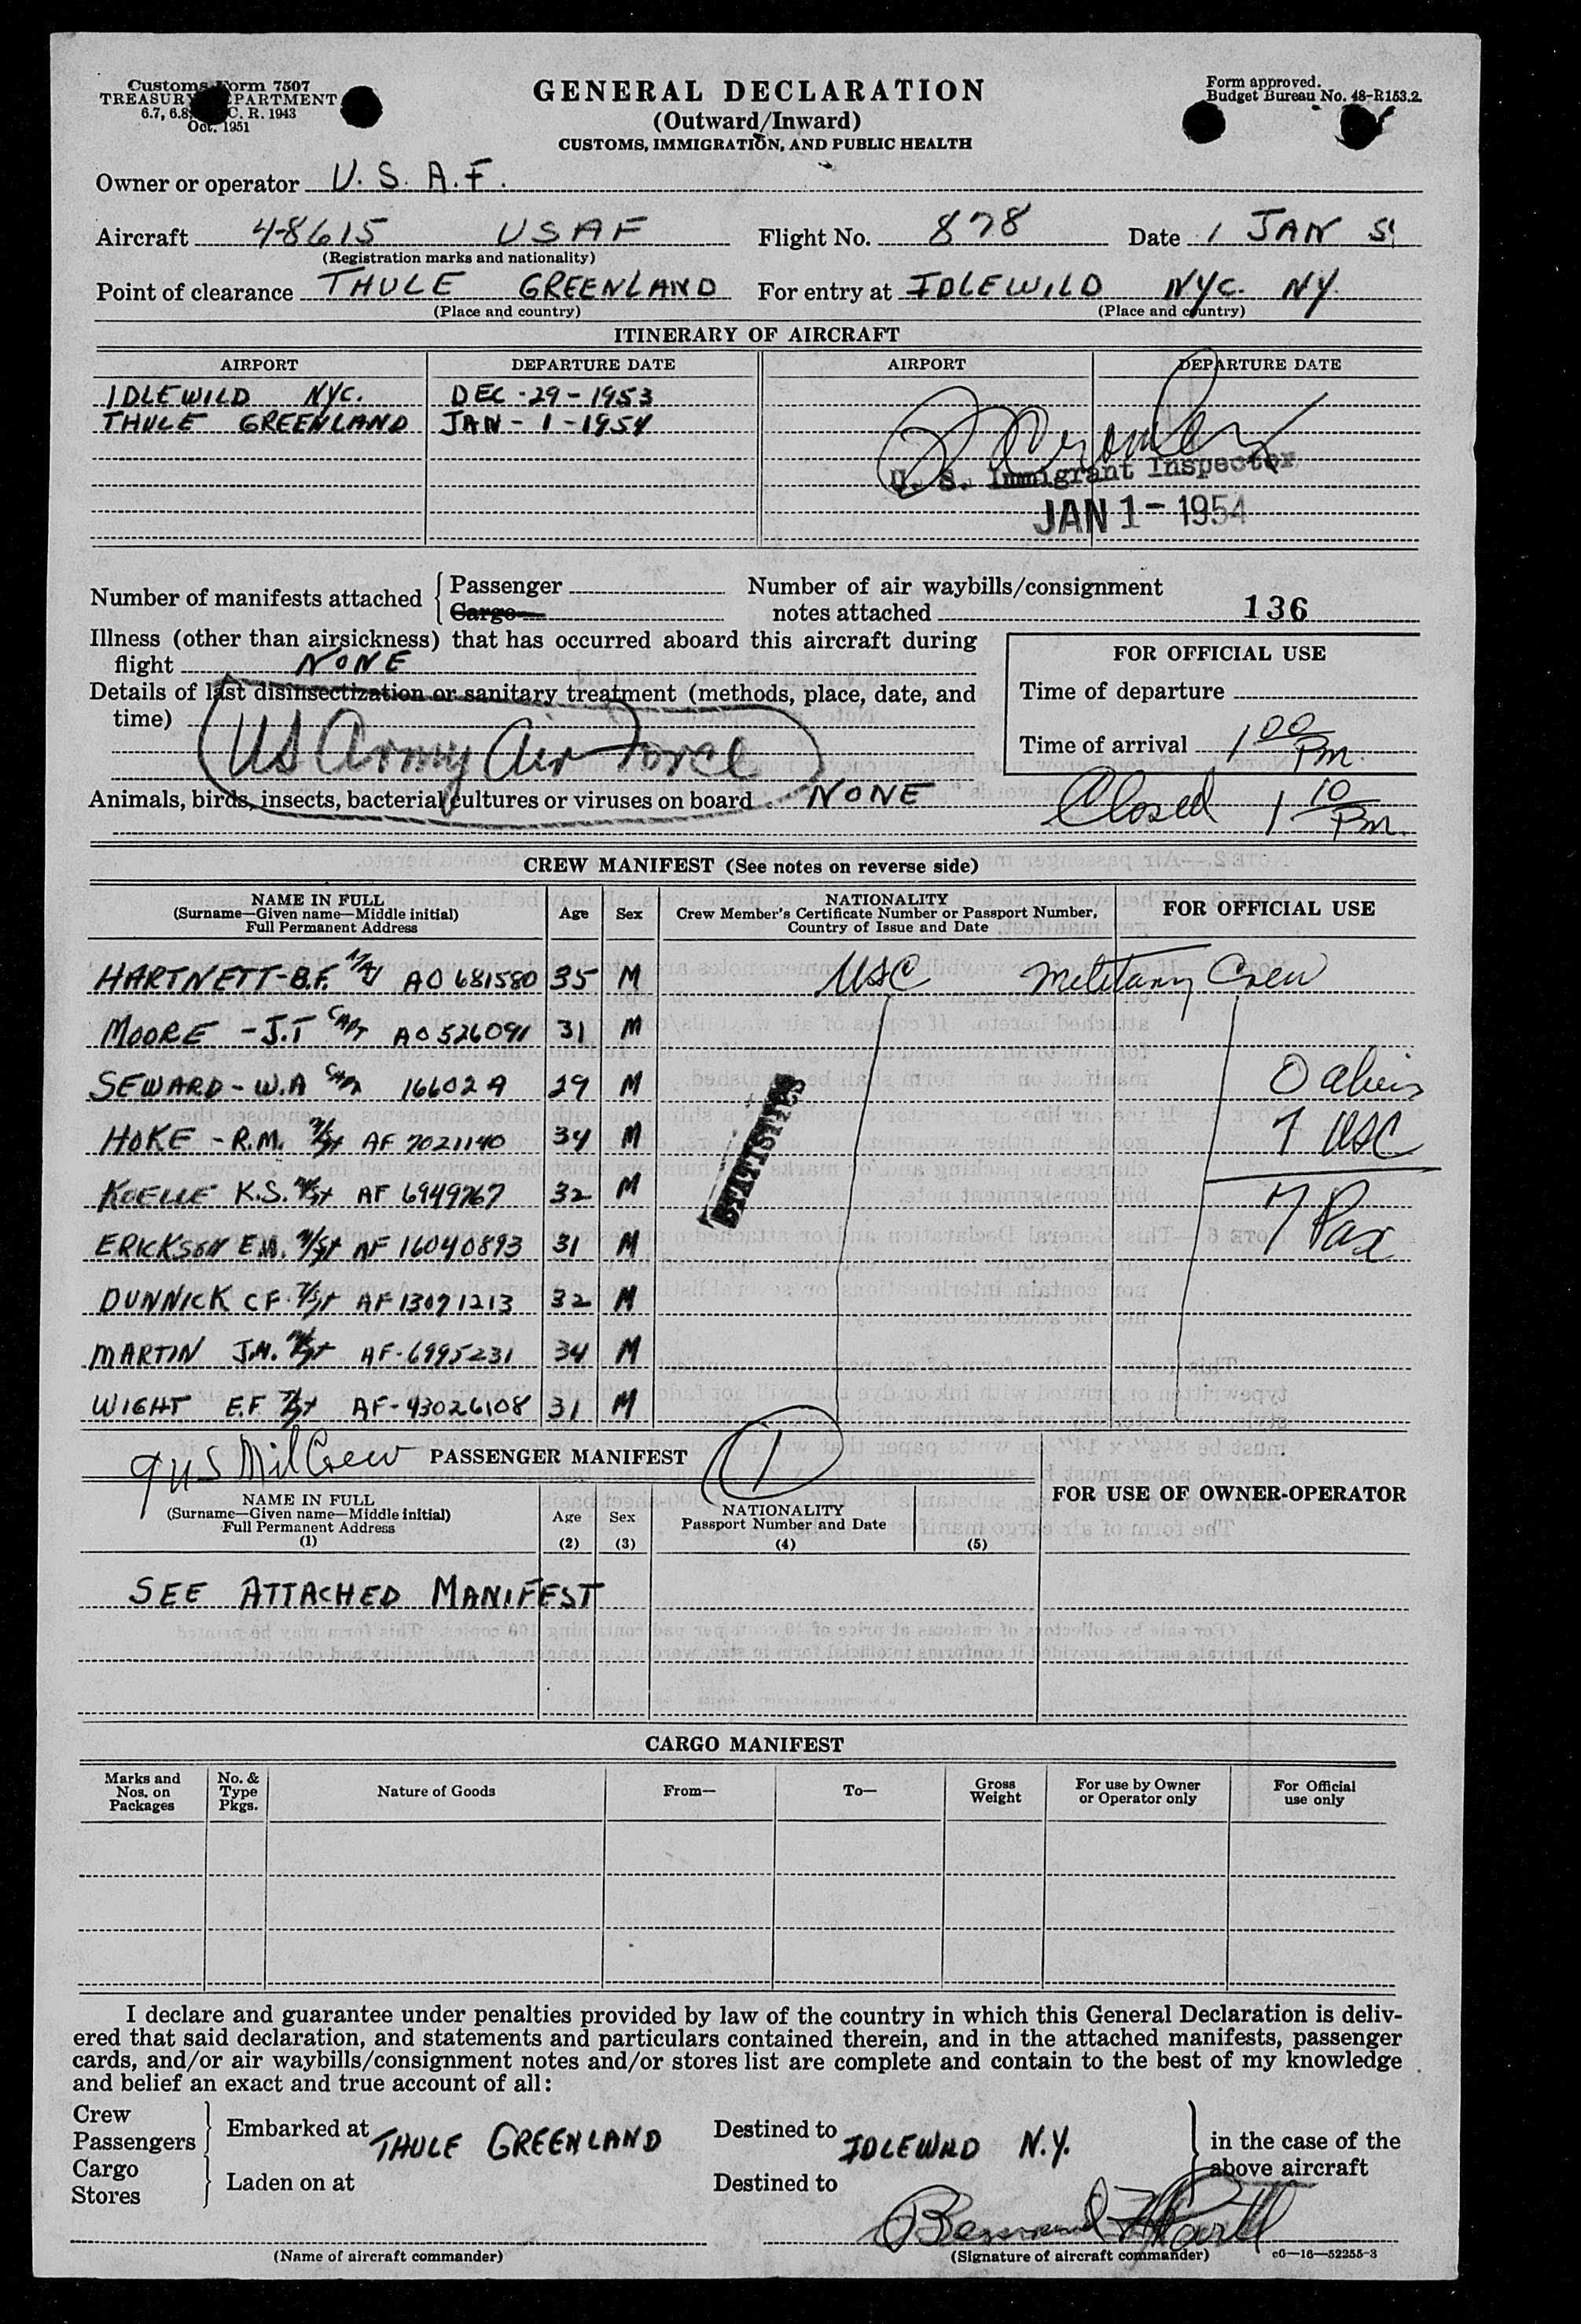 Customs Form 7507
TREASURY DEPARTMENT
6.7, 6.8, C. R. 1943
Oct. 1951
GENERAL DECLARATION
(Outward/Inward)
CUSTOMS, IMMIGRATION, AND PUBLIC HEALTH
Form approved.
Budget Bureau No. 48-R153.2.
Owner or operator U. S. A. F.
Aircraft 48615 USAF Flight No. 878 Date 1 JAN
(Registration marks and nationality)
Point of clearance THULE GREENLAND For entry at IDLEWILD NYC. NY.
(Place and country) (Place and country)
ITINERARY OF AIRCRAFT
AIRPORT DEPARTURE DATE AIRPORT DEPARTURE DATE
IDLEWILD NYC. DEC-29-1953
THULE GREENLAND JAN-1-1954
U. S. Immigrant Inspector
JAN 1- 1954
Number of manifests attached { Passenger
Cargo
Number of air waybills/consignment
notes attached 136
Illness (other than airsickness) that has occurred aboard this aircraft during
flight NONE
Details of last disinsectization or sanitary treatment (methods, place, date, and
time)
US Army Air Force
Animals, birds, insects, bacterial cultures or viruses on board NONE
FOR OFFICIAL USE
Time of departure
Time of arrival 1 00 Pm.
Closed 1 10 Pm.
CREW MANIFEST (See notes on reverse side)
NAME IN FULL
(Surname—Given name—Middle initial)
Full Permanent Address
Age Sex
NATIONALITY
Crew Member's Certificate Number or Passport Number,
Country of Issue and Date
FOR OFFICIAL USE
HARTNETT-B.F. MAJ AO 681580 35 M USC Military Crew
MOORE -J.T CAPT AO 526091 31 M
SEWARD-W.A CAPT 16602 A 29 M 0 aliens
HOKE -R.M. AF 7021140 34 M 7 USC
KOELLE K.S. M/Sgt AF 6949767 32 M
ERICKSON E.M. AF 16040893 31 M 7 Pax
DUNNICK C F. T/Sgt AF 13091213 32 M
MARTIN J.H. M/Sgt AF-6995231 34 M
WIGHT E.F. T/Sgt AF-43026108 31 M
STATISTICS
9 US Mil Crew PASSENGER MANIFEST 1
NAME IN FULL
(Surname—Given name—Middle initial)
Full Permanent Address
(1)
Age
(2)
Sex
(3)
NATIONALITY
Passport Number and Date
(4) (5)
FOR USE OF OWNER-OPERATOR
SEE ATTACHED MANIFEST
CARGO MANIFEST
Marks and
Nos. on
Packages
No. &
Type
Pkgs.
Nature of Goods
From—
To—
Gross
Weight
For use by Owner
or Operator only
For Official
use only
I declare and guarantee under penalties provided by law of the country in which this General Declaration is deliv-
ered that said declaration, and statements and particulars contained therein, and in the attached manifests, passenger
cards, and/or air waybills/consignment notes and/or stores list are complete and contain to the best of my knowledge
and belief an exact and true account of all:
Crew
Passengers
Embarked at THULE GREENLAND Destined to IDLEWILD N.Y.
Cargo
Stores
Laden on at Destined to
in the case of the
above aircraft
(Name of aircraft commander) (Signature of aircraft commander) c6—16—52255-3